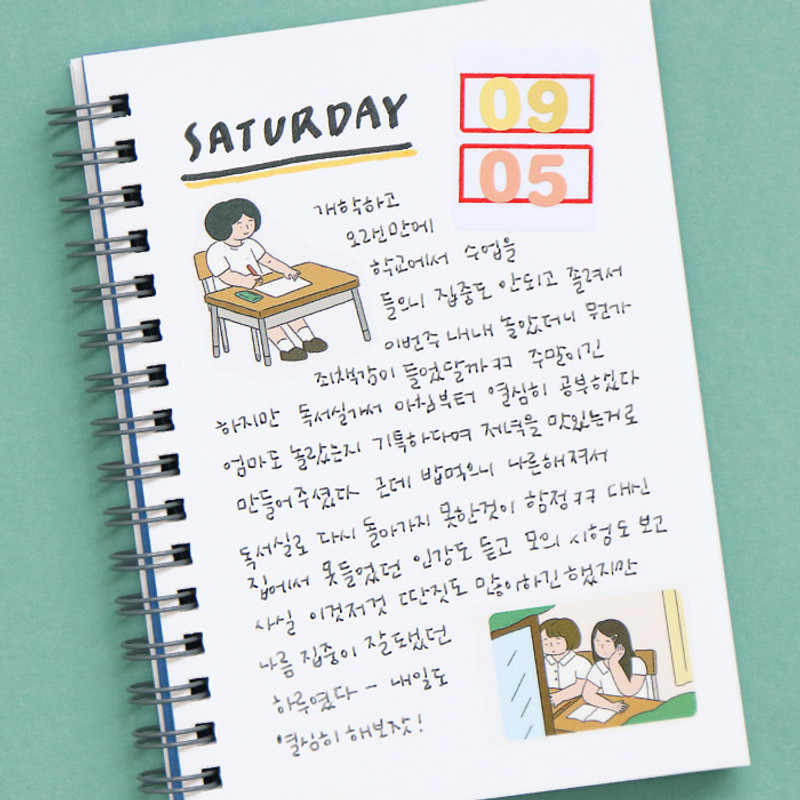 SATURDAY
09
05
개학하고
오랜만에
학교에서 수업을
들으니 집중도 안되고 졸려서
이번주 내내 놀았더니 뭔가
죄책감이 들었달까ㅋㅋ 주말이긴
하지만 독서실가서 아침부터 열심히 공부했다
엄마도 놀랐는지 기특하다며 저녁을 맛있는거로
만들어주셨다 근데 밥먹으니 나른해져서
독서실로 다시 돌아가지 못한것이 함정ㅋㅋ 대신
집에서 못들었던 인강도 듣고 모의 시험도 보고
사실 이것저것 딴짓도 많이하긴 했지만
나름 집중이 잘됐던
하루였다 - 내일도
열심히 해보잣!